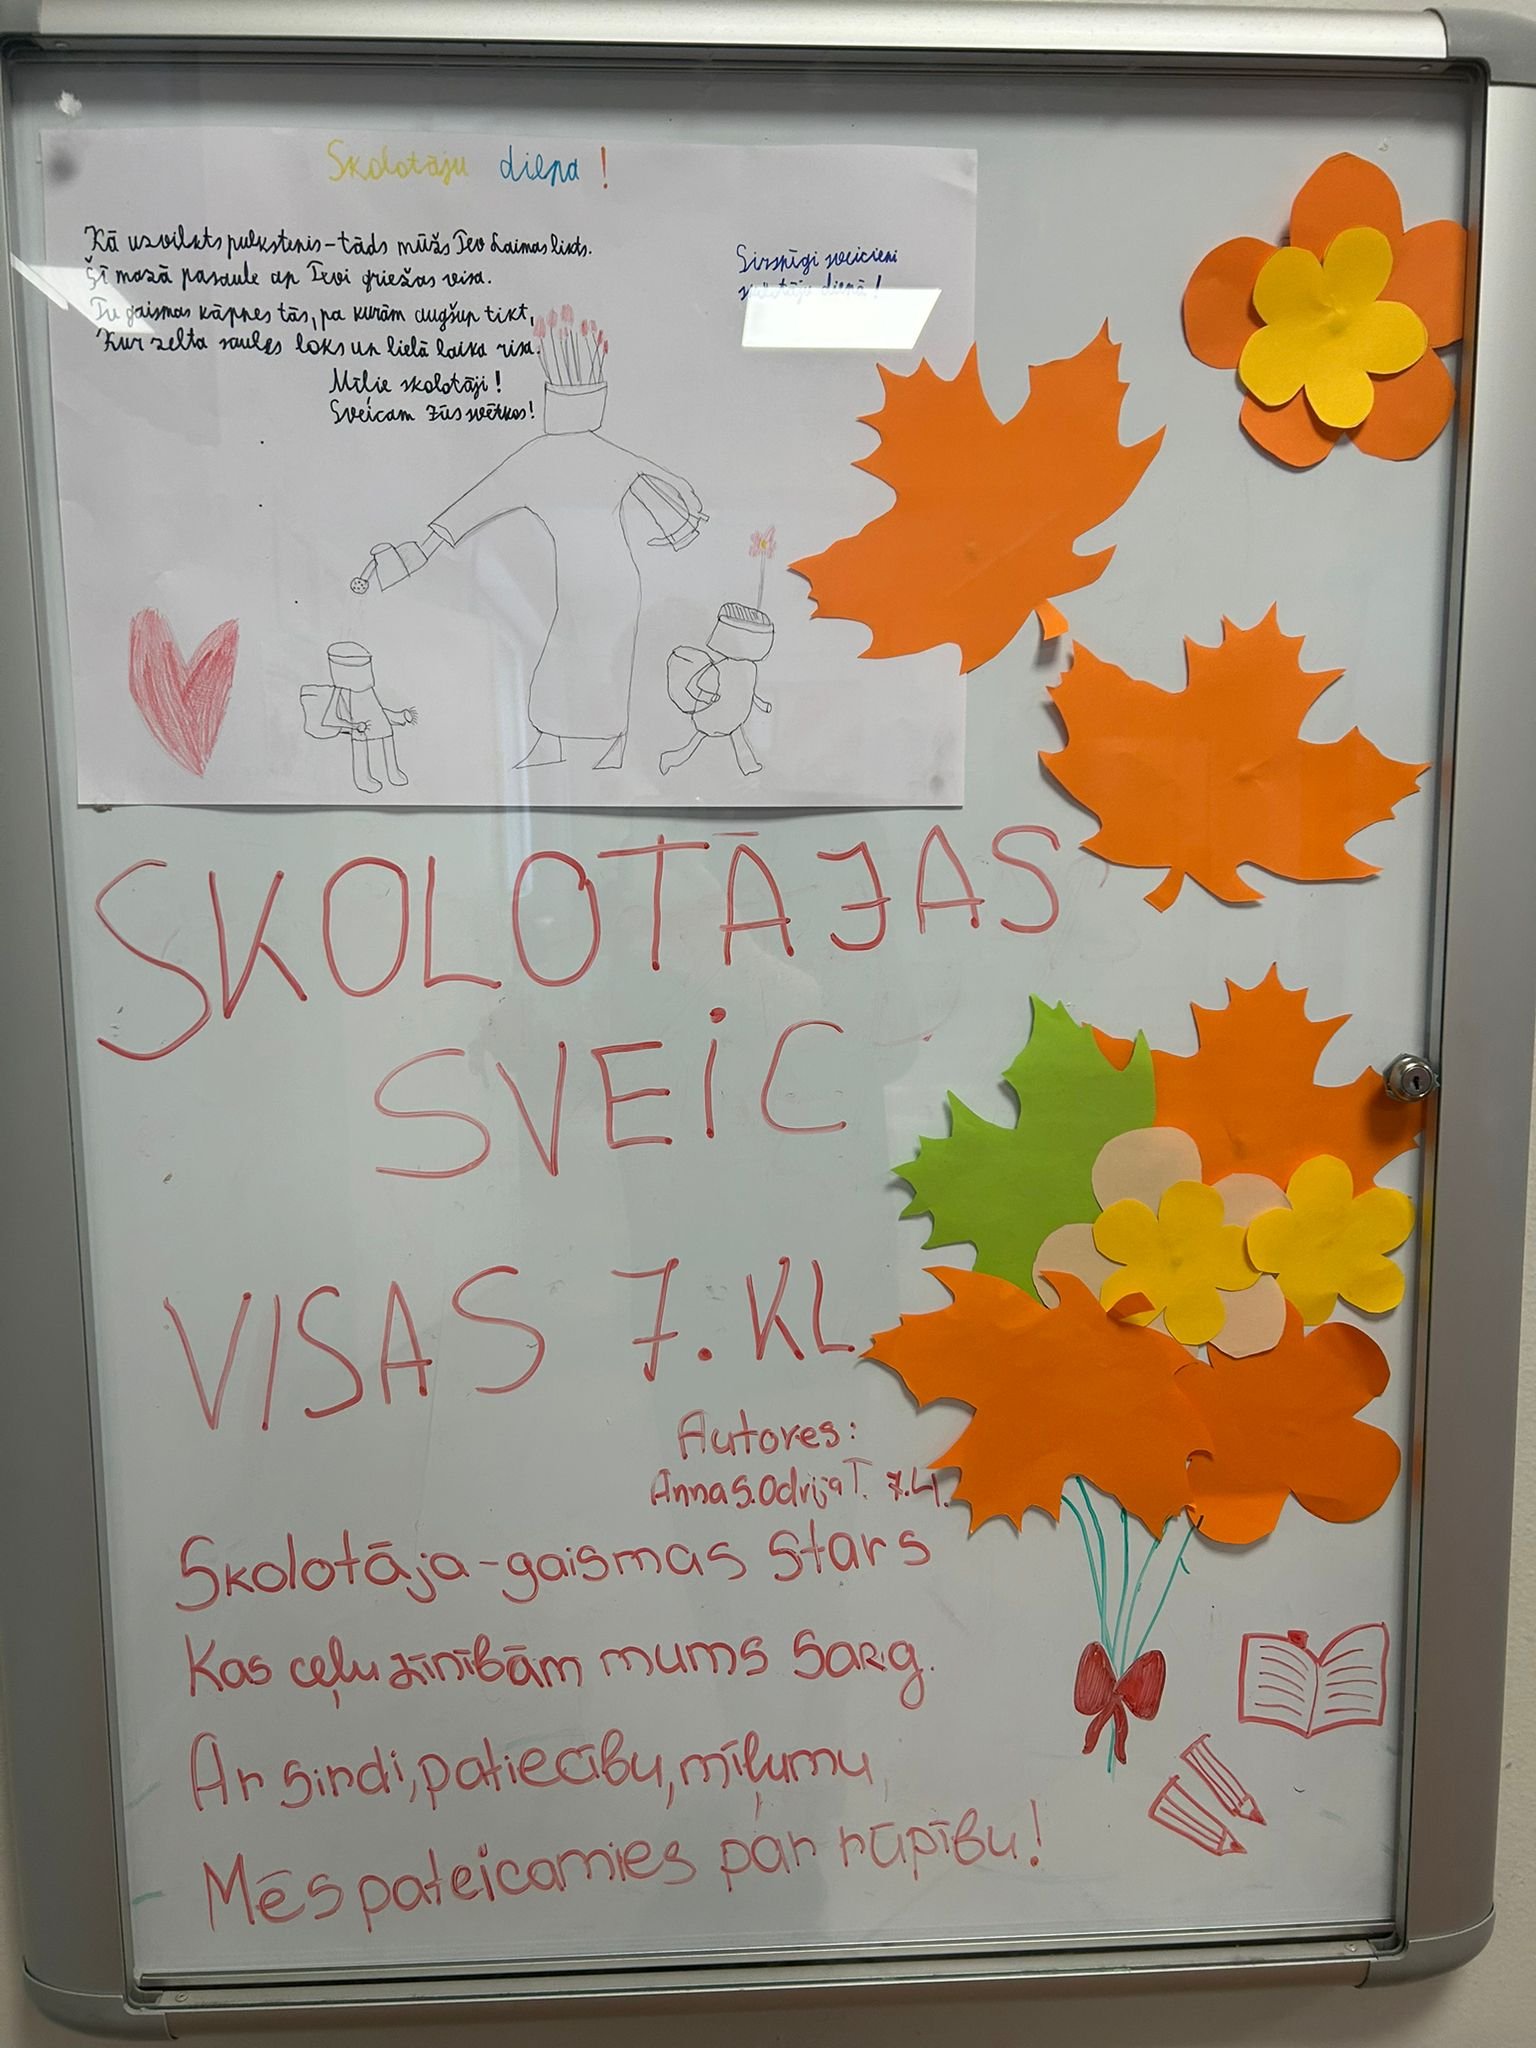 Skolotāju diena!
Kā uzvilkts pulkstenis - tāds mūžs Tev Laimas likts.
Šī mazā pasaule ap Tevi griežas visa.
Tu gaismas kāpnes tās, pa kurām augšup tikt,
Kur zelta saules loks un lielā laika risa.
Mīļie skolotāji!
Sveicam Jūs svētkos!
Sirsnīgi sveicieni
skolotāju dienā!
SKOLOTĀJAS
SVEiC
VISAS 7. KL
Autores:
Anna S. Odrija T. 7.4.
Skolotāja - gaismas stars
Kas ceļu zīnībām mums sarg.
Ar sirdi, patiecību, mīļumu,
Mēs pateicamies par rūpību!